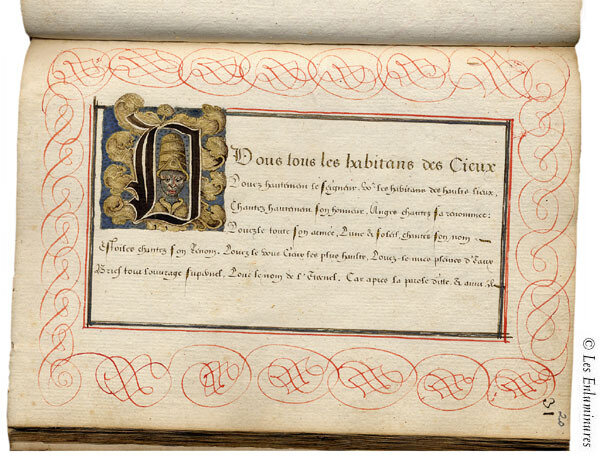 Vous tous les habitans des Cieux
Louez hautement le seigneur, Vo⁹ les habitans des haults lieux,
Chantez hautement son honneur, Anges chantez sa renommee:
Louez le toute son armee, Lune & soleil, chantez son nom
Estoiles chantez son Renom. Louez le vous Cieux les plus haults, Louez-le nues pleines d'Eaux
Brief tout louvrage supernel, Loue le nom de l'Eternel. Car apres sa parole ditte, &
31
20
© Les Enluminures